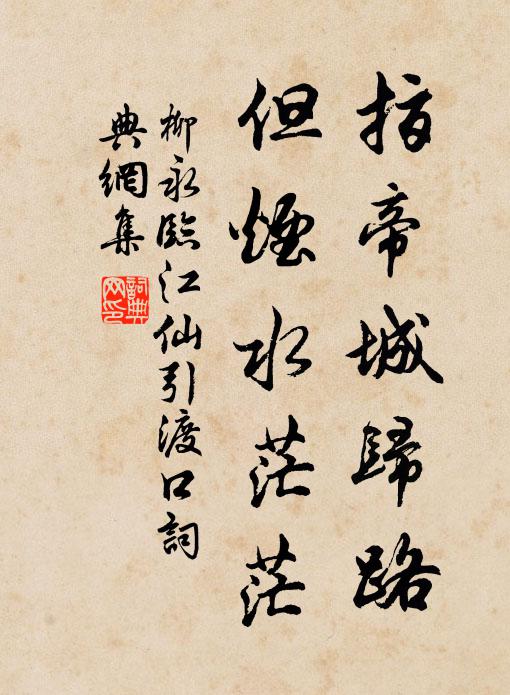 指帝城歸路
但煙水茫茫
柳永臨江仙引渡口詞
典網集
詞典网印